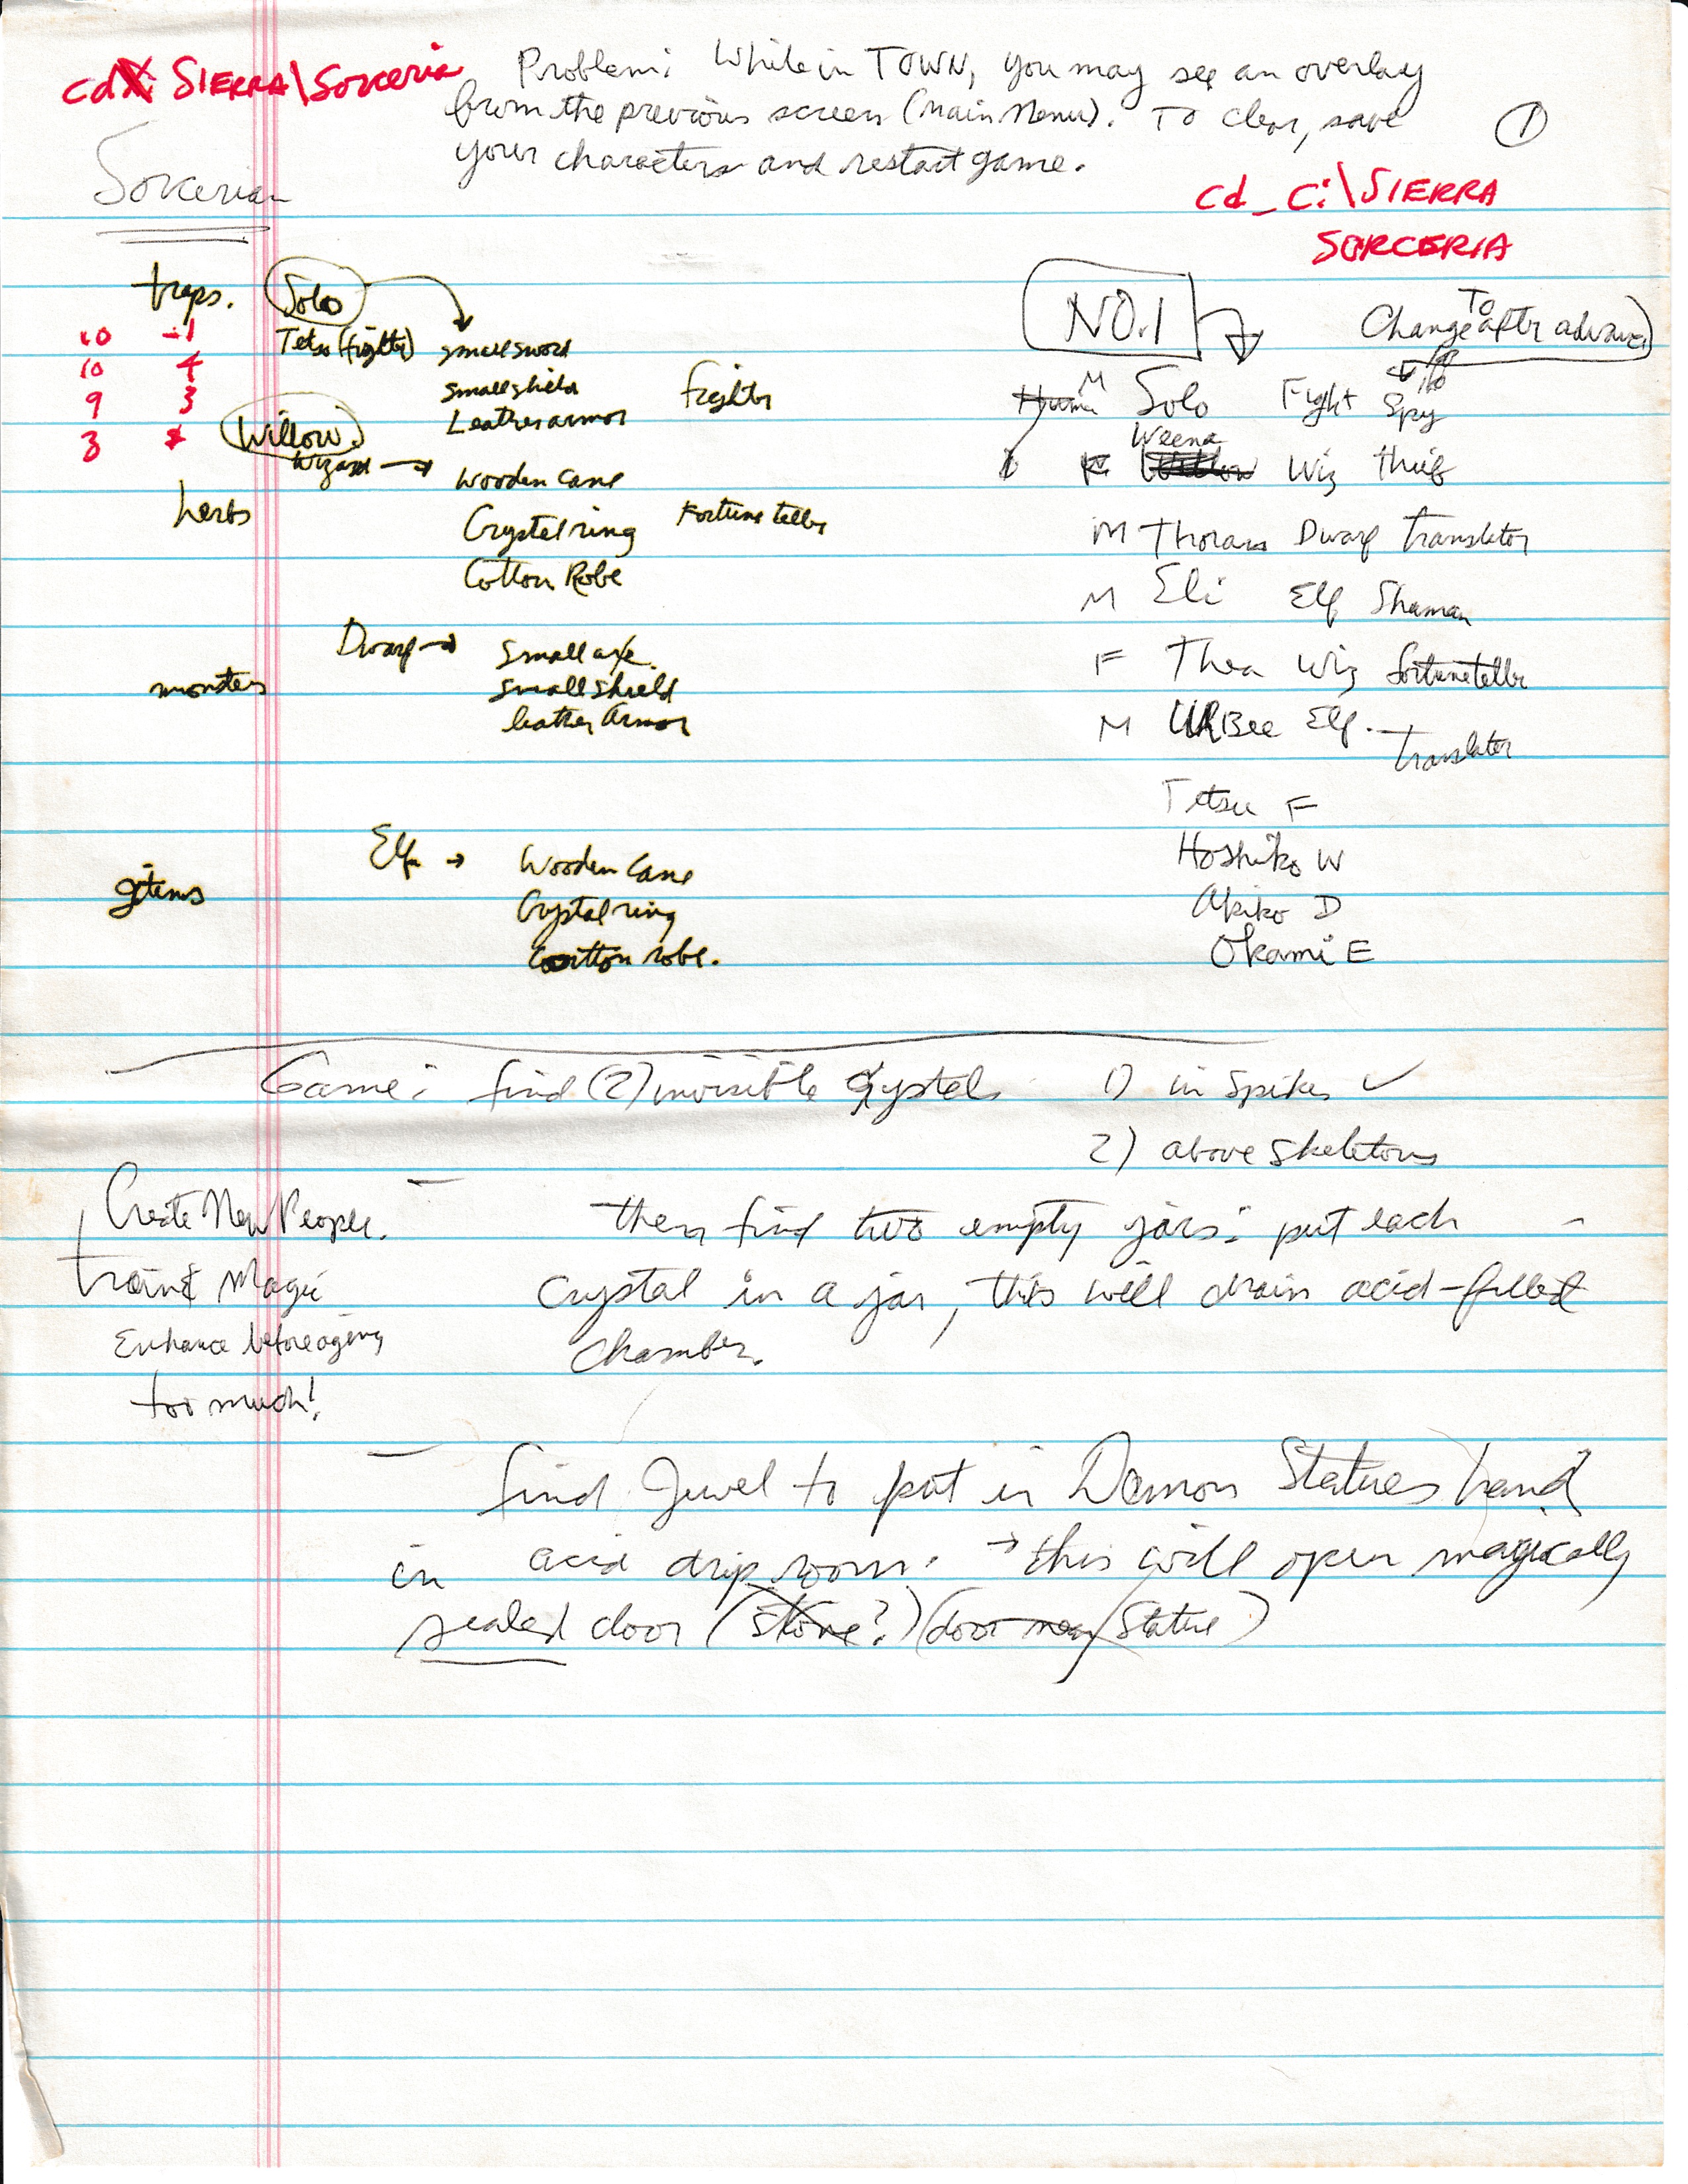 cd SIERRA\Sorceria
Problem: While in TOWN, you may see an overlay
from the previous screen (Main Menu). To clear, save
your characters and restart game.
1
Sorcerian
cd_C:\SIERRA
SORCERIA
traps.
Solo
10 -1
Tetso (fighter) small sword
10 4
small shield
Fighter
9 3
Leather armor
Willow
3
Wizard → wooden cane
herbs
Crystal ring
Fortune teller
Cotton Robe
Dwarf → small axe.
monsters
small shield
leather Armor
Elf → Wooden cane
items
Crystal ring
Cotton robe.
NO.1
To
Change after advance
M Solo Fight Spy
Weena
Willow Wiz thief
M Thoran Dwarf translator
M Eli Elf Shaman
F Thea Wiz fortuneteller
M URBee Elf.
translator
Tetsu F
Hoshiko W
Akiko D
Okami E
Game: find (2) invisible Crystals 1) in spikes ✓
2) above skeletons
Create New People.
- then find two empty jars: put each
train & Magic
crystal in a jar, this will drain acid-filled
Enhance before aging
chamber.
too much!
- find Jewel to put in Demon Statues hand
in acid drip room. → this will open magically
sealed door (stone?) (door near statue)